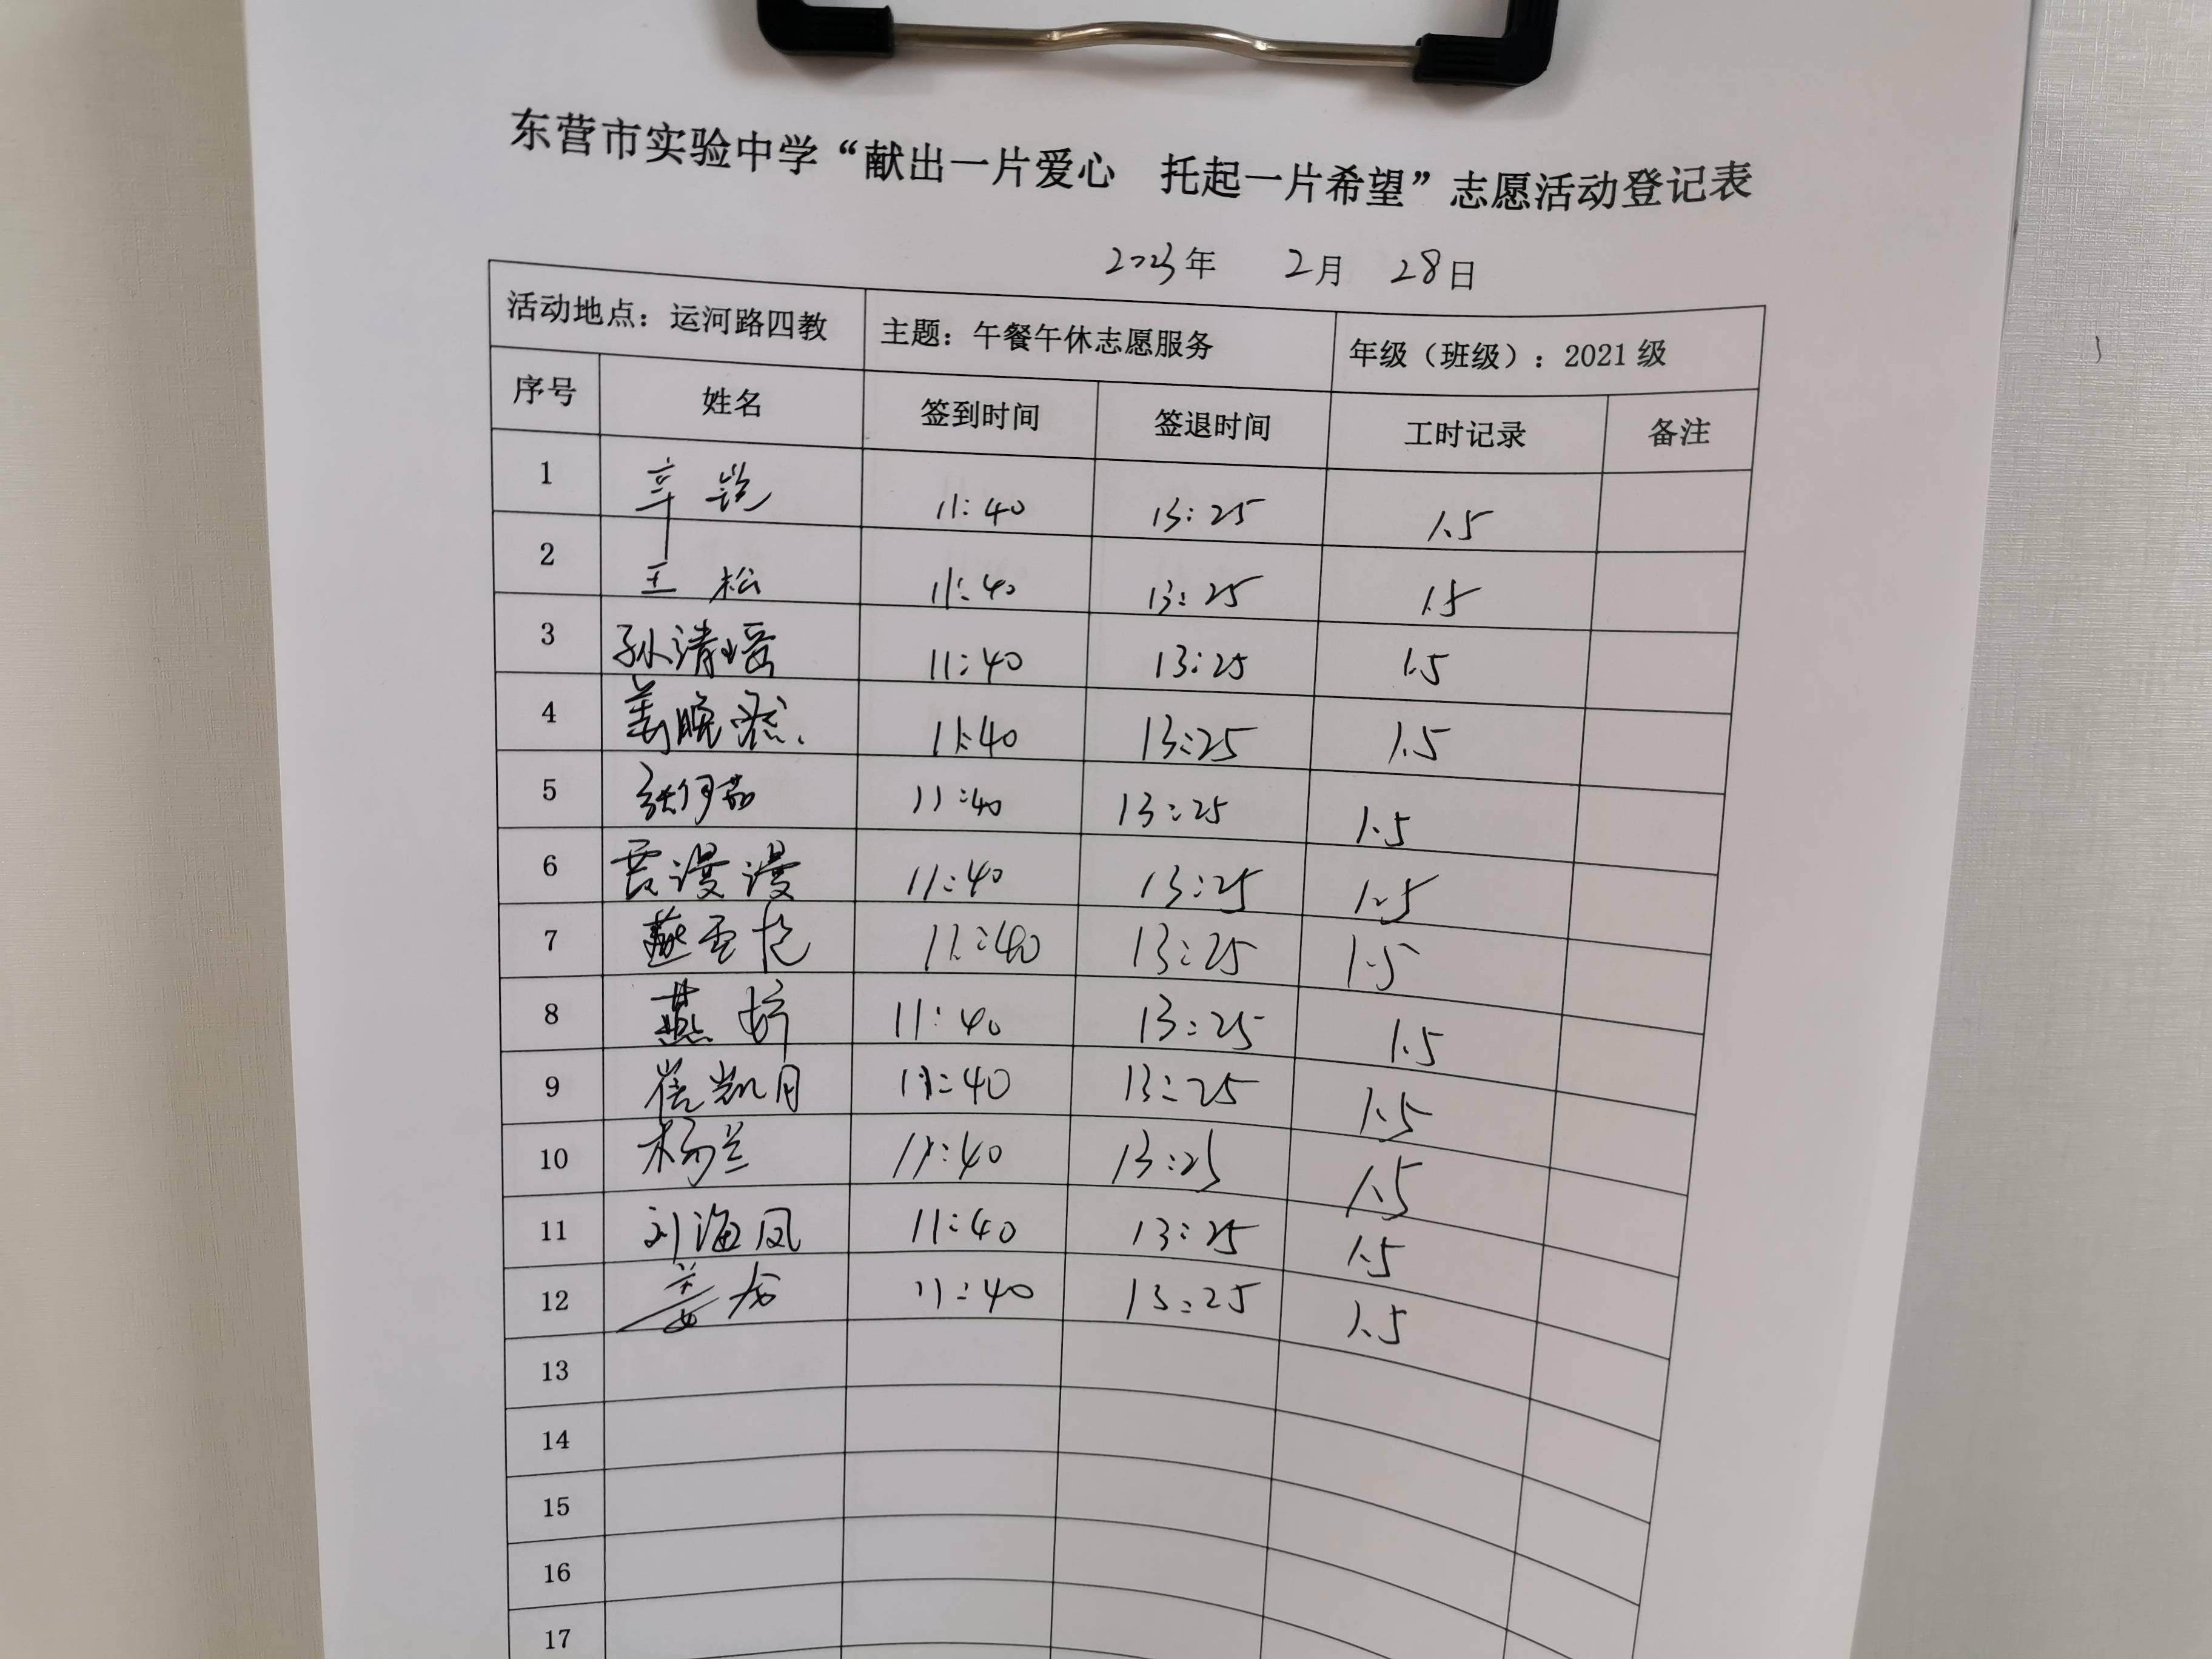 东营市实验中学“献出一片爱心 托起一片希望”志愿活动登记表
2023年 2月 28日
活动地点：运河路四教 主题：午餐午休志愿服务 年级（班级）：2021级
序号 姓名 签到时间 签退时间 工时记录 备注
1 辛锐 11:40 13:25 1.5
2 王松 11:40 13:25 1.5
3 孙清瑶 11:40 13:25 1.5
4 姜晓 11:40 13:25 1.5
5 张伊茹 11:40 13:25 1.5
6 贾漫漫 11:40 13:25 1.5
7 燕 11:40 13:25 1.5
8 燕 11:40 13:25 1.5
9 崔凯月 11:40 13:25 1.5
10 杨兰 11:40 13:25 1.5
11 刘海凤 11:40 13:25 1.5
12 姜龙 11:40 13:25 1.5
13
14
15
16
17